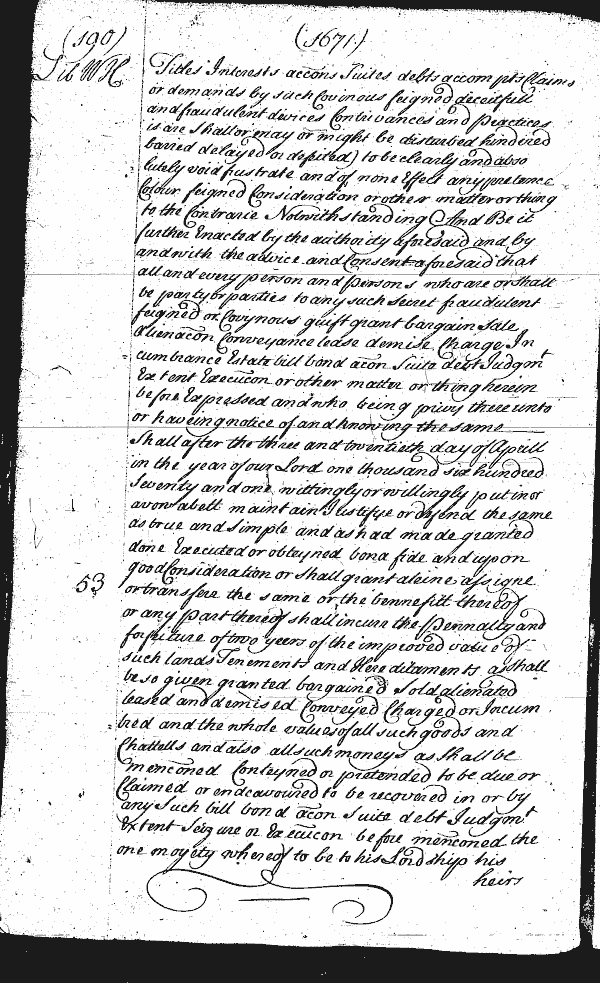 (190)
(1671)
Lib WH
Titles Interests accons Suites debts accompts Claims
or demands by such Covinous feigned deceitfull
and fraudulent devices Contrivances and Practices
is are shall or may or might be disturbed hindered
barred delayed or defeited) to be clearly and abso
lutely void frustrate and of none Effect any pretence
Colour feigned Consideration or other matter or thing
to the Contrarie Notwithstanding And Be it
further Enacted by the authority aforesaid and by
and with the advice and Consent aforesaid that
all and every person and persons who are or shall
be party or parties to any such Secret fraudulent
feigned or Covynous guift grant bargain Sale
alienacon Conveyance lease demise Charge In
cumbrance Estate bill bond acon Suite debt Judgmt
Extent Execucon or other matter or thing herein
before Expressed and who being privy thereunto
or haveing notice of and knowing the same
Shall after the three and twentieth day of Aprill
in the year of our Lord one thousand six hundred
Seventy and one wittingly or willingly put in or
avow abett maintain Justifye or defend the same
as true and simple and as had made granted
done Executed or obteyned bona fide and upon
good Consideration or shall grant aleine assigne
53
or transfere the same or the bennefitt thereof
or any part thereof shall incurr the Pennalty and
forfeiture of two yeers of the improved value of
such lands Tenements and Hereditaments as shall
be so given granted bargained Sold alienated
leased and demised Conveyed Charged or Incum
bred and the whole values of all such goods and
Chattells and also all such moneys as shall be
menconed Conteyned or pretended to be due or
Claimed or endeavoured to be recovered in or by
any Such bill bond acon Suite debt Judgmt
Extent Seizure or Execucon before menconed the
one moyety whereof to be to his Lordship his
heirs